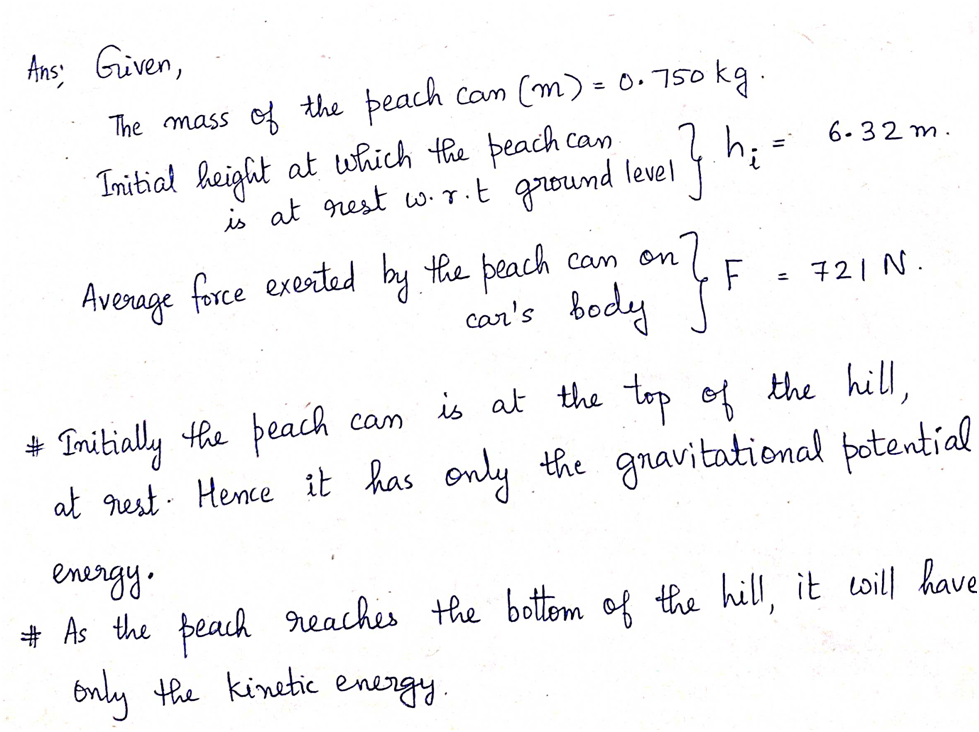 Ans; Given,
The mass of the peach can (m) = 0.750 kg.
Initial height at which the peach can
is at rest w.r.t ground level } hi = 6.32 m.
Average force exerted by the peach can on
car's body } F = 721 N.
# Initially the peach can is at the top of the hill,
at rest. Hence it has only the gravitational potential
energy.
# As the peach reaches the bottom of the hill, it will have
only the kinetic energy.